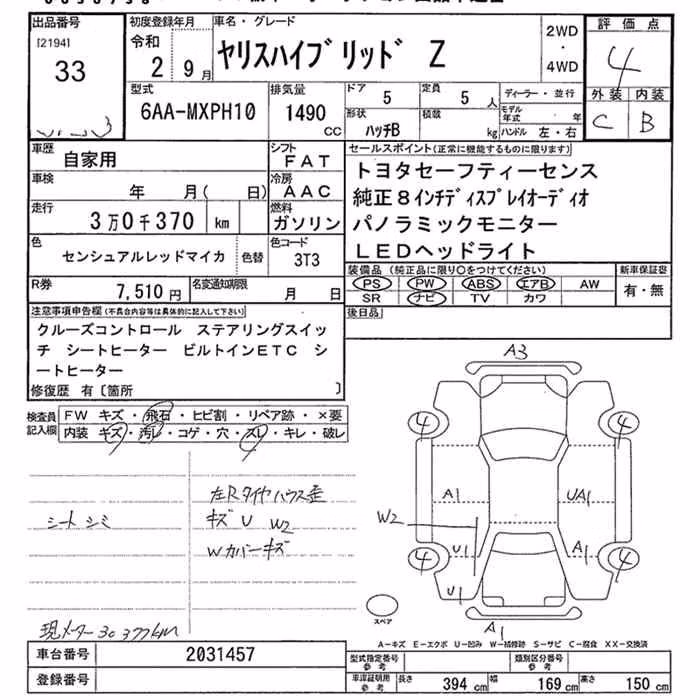 出品番号
[2194]
33
初度登録年月
令和
2 9月
車名・グレード
ヤリスハイブリッド Z
2WD
・
4WD
評価点
4
外装 内装
C B
型式
6AA-MXPH10
排気量
1490
CC
ドア
5
定員
5 人
形状
ハッチB
積載
kg
ディーラー・並行
モデル年式 年
ハンドル 左・右
車歴
自家用
シフト
FAT
車検
年 月( 日)
冷房
AAC
走行
3万0千370 km
燃料
ガソリン
色
センシュアルレッドマイカ
色替
色コード
3T3
R券
7,510円
名変通知期限
月 日
セールスポイント(正常に機能するものに限ります)
トヨタセーフティーセンス
純正8インチディスプレイオーディオ
パノラミックモニター
LEDヘッドライト
装備品(純正品に限り○をつけてください)
PS PW ABS エアB AW
SR ナビ TV カワ
新車保証書
有・無
後日品
注意事項申告欄(不具合内容等は具体的に記入して下さい)
クルーズコントロール ステアリングスイッ
チ シートヒーター ビルトインETC シ
ートヒーター
修復歴 有〔箇所 〕
検査員
記入欄
FW キズ・飛石・ヒビ割・リペア跡・×要
内装 キズ・汚レ・コゲ・穴・スレ・キレ・破レ
シートシミ
左Rタイヤハウス歪
キズ U W2
Wカバーキズ
現メーター30377km
A3
4 4
A1 UA1
W2
4 U1 A1 4
U1
A1
スペア
A-キズ E-エクボ U-凹み W-補修跡 S-サビ C-腐食 XX-交換済
車台番号
2031457
登録番号
型式指定番号
参考
類別区分番号
参考
車検証掲載
参考
長さ 394 cm 幅 169 cm 高さ 150 cm